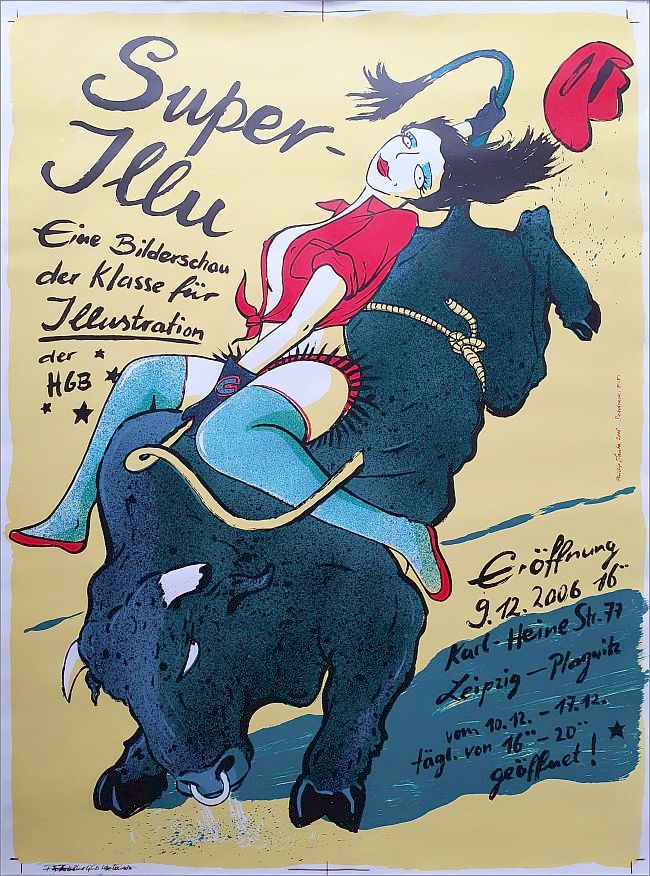 Super-
Illu
Eine Bilderschau
der Klasse für
Illustration
der
HGB
Eröffnung
9.12.2006 16°°
Karl-Heine Str. 77
Leipzig-Plagwitz
vom 10.12. - 17.12.
tägl. von 16°°-20°°
geöffnet!